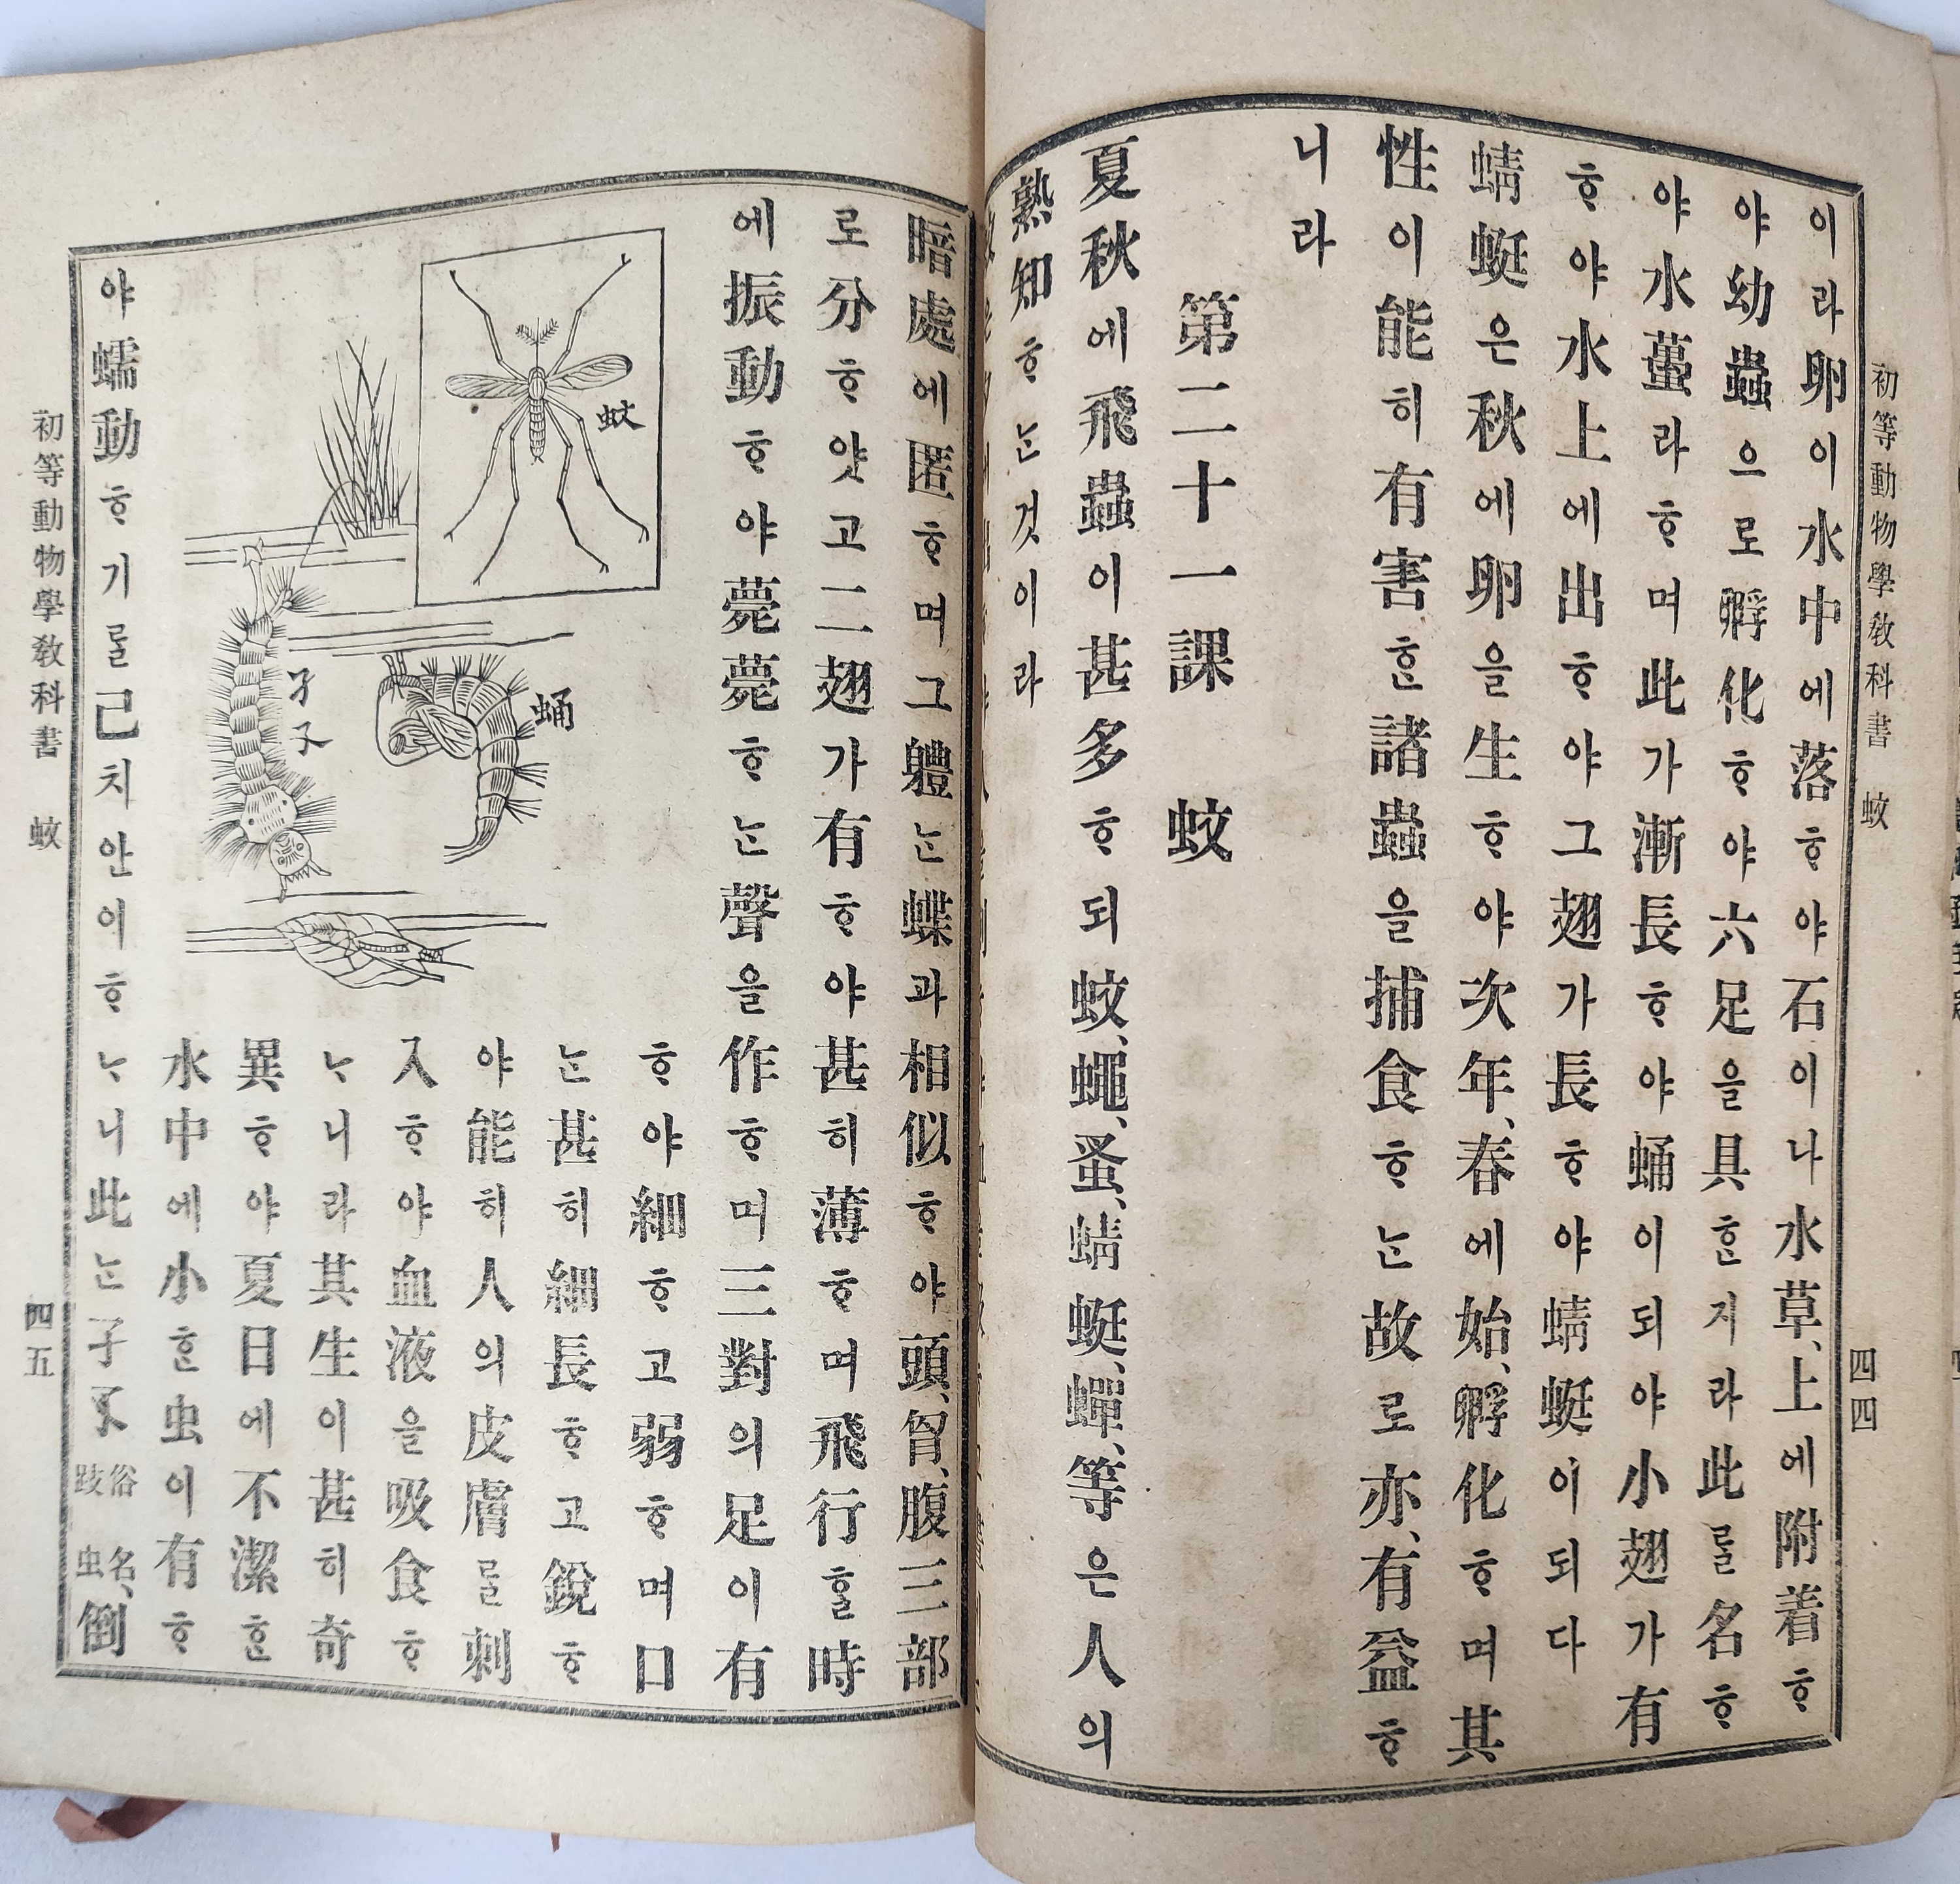 初等動物學敎科書 蚊 四四
이라卵이水中에落ᄒᆞ야石이나水草、上에附着ᄒᆞ
야幼蟲으로孵化ᄒᆞ야六足을具ᄒᆞᆫ지라此ᄅᆞᆯ名ᄒᆞ
야水蠆라ᄒᆞ며此가漸長ᄒᆞ야蛹이되야小翅가有
ᄒᆞ야水上에出ᄒᆞ야그翅가長ᄒᆞ야蜻蜓이되다
蜻蜓은秋에卵을生ᄒᆞ야次年、春에始、孵化ᄒᆞ며其
性이能히有害ᄒᆞᆫ諸蟲을捕食ᄒᆞᄂᆞᆫ故로亦、有益ᄒᆞ
니라
第二十一課 蚊
夏秋에飛蟲이甚多ᄒᆞ되蚊、蠅、蚤、蜻蜓、蟬、等은人의
熟知ᄒᆞᄂᆞᆫ것이라
暗處에匿ᄒᆞ며그軆ᄂᆞᆫ蝶과相似ᄒᆞ야頭、胷、腹三部
로分ᄒᆞ얏고二翅가有ᄒᆞ야甚히薄ᄒᆞ며飛行ᄒᆞᆯ時
에振動ᄒᆞ야薨薨ᄒᆞᄂᆞᆫ聲을作ᄒᆞ며三對의足이有
ᄒᆞ야細ᄒᆞ고弱ᄒᆞ며口
ᄂᆞᆫ甚히細長ᄒᆞ고銳ᄒᆞ
야能히人의皮膚ᄅᆞᆯ刺
入ᄒᆞ야血液을吸食ᄒᆞ
ᄂᆞ니라其生이甚히奇
異ᄒᆞ야夏日에不潔ᄒᆞᆫ
水中에小ᄒᆞᆫ虫이有ᄒᆞ
야蠕動ᄒᆞ기ᄅᆞᆯ已치안이ᄒᆞᄂᆞ니此ᄂᆞᆫ孑孓俗名、跂虫倒
蚊
蛹
孑孓
初等動物學敎科書 蚊 四五